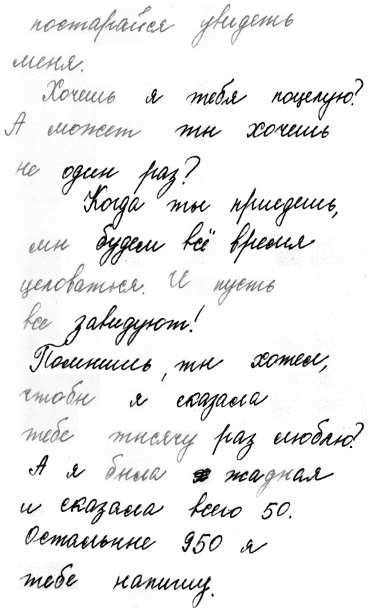 постарайся увидеть
меня.
Хочешь я тебя поцелую?
А может ты хочешь
не один раз?
Когда ты приедешь,
мы будем всё время
целоваться. И пусть
все завидуют!
Помнишь, ты хотел,
чтобы я сказала
тебе тысячу раз люблю?
А я была жадная
и сказала всего 50.
Остальные 950 я
тебе напишу.